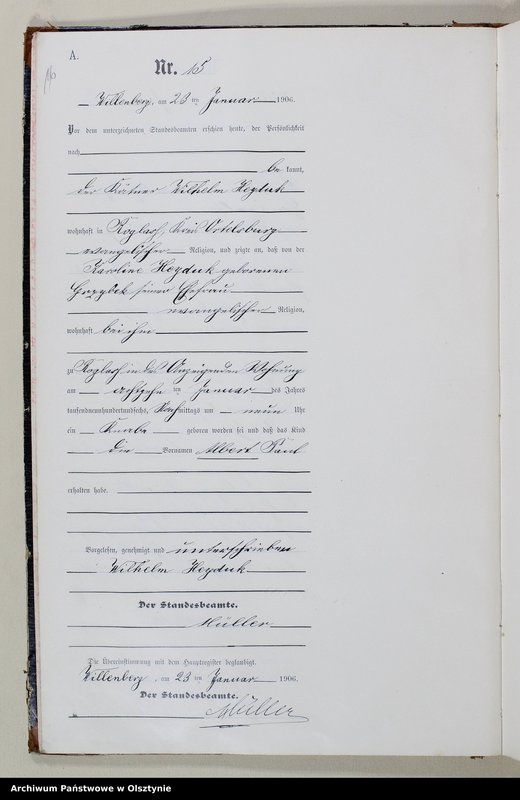 A.
Nr. 15
Willenberg, am 23 ten Januar 1906.
Vor dem unterzeichneten Standesbeamten erschien heute, der Persönlichkeit
nach
be kannt,
der Kätner Wilhelm Heyduk
wohnhaft in Roglass, Kreis Ortelsburg
evangelischer Religion, und zeigte an, daß von der
Karoline Heyduk geborenen
Grzybek seiner Ehefrau
evangelischer Religion,
wohnhaft bei ihm
zu Roglass in des Anzeigenden Wohnung
am achtzehn ten Januar des Jahres
tausendneunhundertundsechs, Nachmittags um neun Uhr
ein Knabe geboren worden sei und daß das Kind
die Vornamen Albert Paul
erhalten habe.
Vorgelesen, genehmigt und unterschrieben
Wilhelm Heyduk
Der Standesbeamte.
Müller
Die Übereinstimmung mit dem Hauptregister beglaubigt.
Willenberg, am 23 ten Januar 1906.
Der Standesbeamte.
Müller
Archiwum Państwowe w Olsztynie